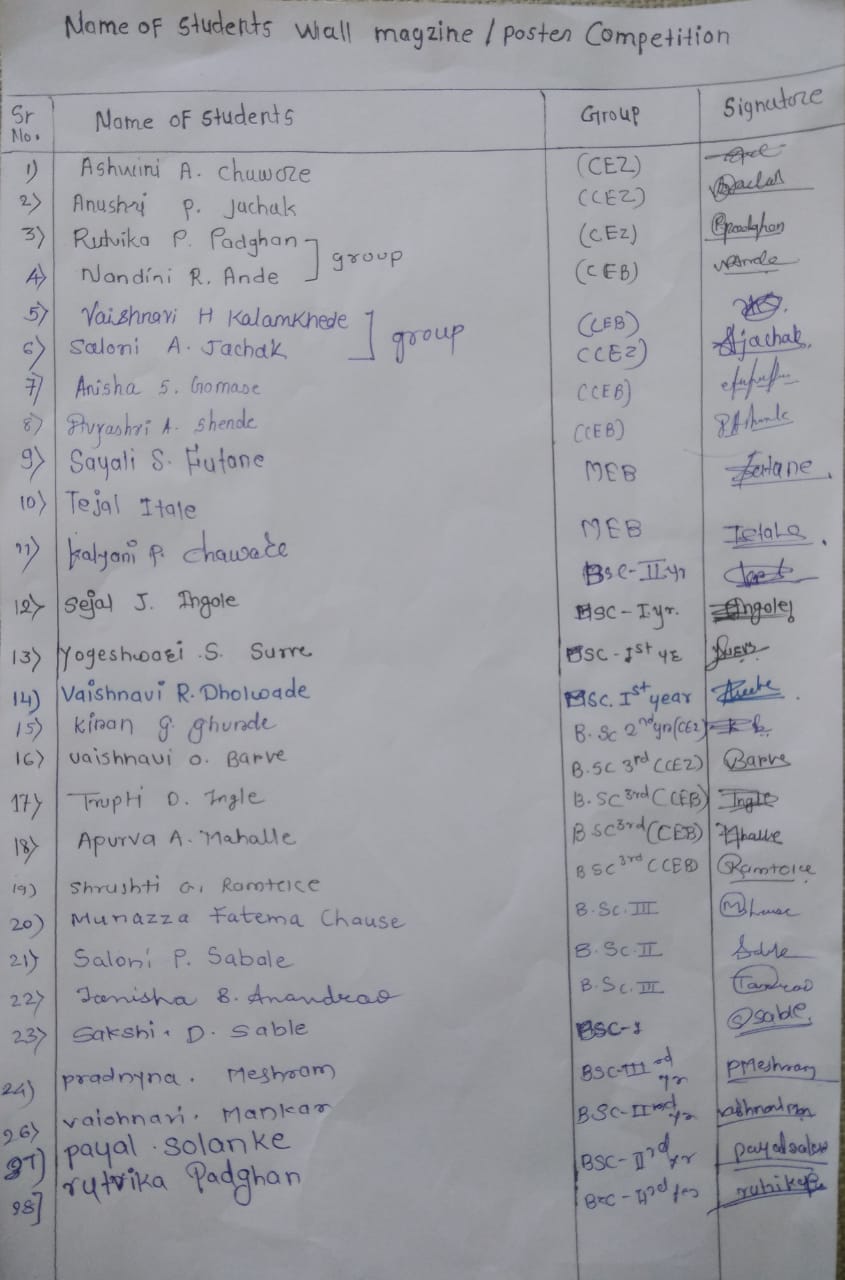 Name of Students Wall magzine / poster Competition
Sr No. Name of Students Group Signature
1) Ashwini A. Chuwore (CEZ)
2) Anushri P. Jachak (CEZ)
3) Rutvika P. Padghan group (CEZ) Rpadghan
4) Nandini R. Ande (CEB) NAnde
5) Vaishnavi H Kalamkhede group (CEB)
6) Saloni A. Jachak (CEZ) Sjachak
7) Anisha S. Gomase (CEB)
8) A. Shende (CEB)
9) Sayali S. Futane MEB Futane
10) Tejal Itale MEB Itale
11) Kalyani P. Chawate BSc-II yr
12) Sejal J. Ingole BSC-I yr. Ingole
13) Yogeshwari S. Surve BSC-1st
14) Vaishnavi R. Dholwade BSc. Ist year
15) Kiran G. Ghunde B.Sc 2nd yr (CEZ)
16) Vaishnavi O. Barve B.SC 3rd (CEZ) Barve
17) Trupti D. Ingle B.SC 3rd (CEB) Ingle
18) Apurva A. Mahalle B SC 3rd (CEB)
19) Shrushti G. Ramteke BSC 3rd (CEB) Ramteke
20) Munazza Fatema Chause B.Sc. III
21) Saloni P. Sabale B.Sc. II
22) Tanisha B. Anandrao B.Sc. III
23) Sakshi. D. Sable BSC-I Sable
24) pradnyna. Meshram BSC-III rd yr PMeshram
26) vaishnavi. Mankar BSC-II yr
27) payal. Solanke BSC-II rd yr payal
28] rutvika Padghan BSC-